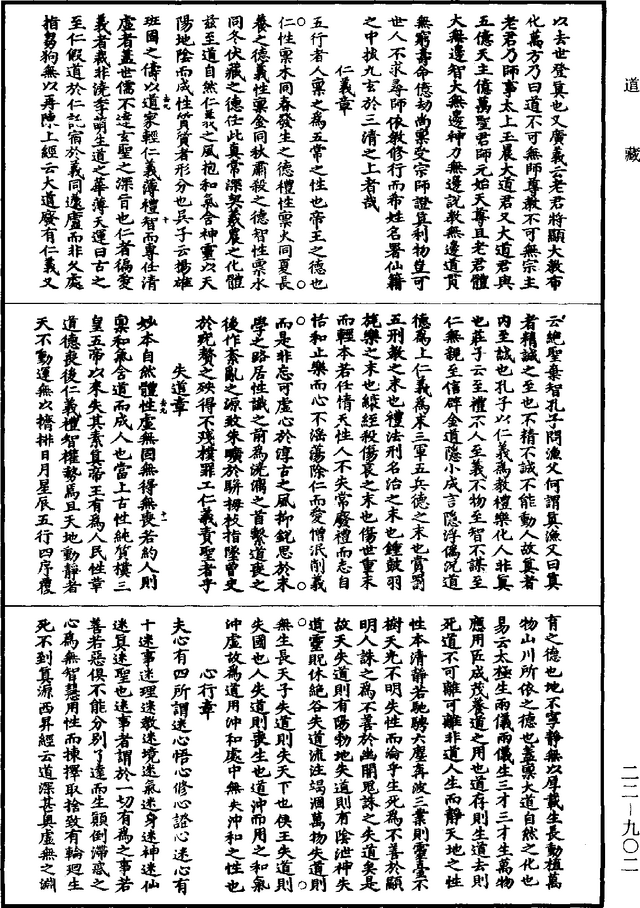 道藏
以去世登真也又廣義云老君將顯大教布
化萬方乃曰道不可無師尊教不可無宗主
老君乃師事太上玉晨大道君又大道君與
五億天主億萬聖君師元始天尊且老君體
大無邊智大無邊神力無邊說教無邊道貫
無窮壽命億劫尚稟受宗師證算利物豈可
世人不求尋師依教修行而希姓名署仙籍
之中拔九玄於三清之上者哉
仁義章
五行者人稟之為五常之性也帝王之德也
仁性稟木同春發生之德禮性稟火同夏長
養之德義性稟金同秋肅殺之德智性稟水
同冬伏藏之德任此真常深契羲農之化體
茲至道自然仁義之風抱和氣含神靈以天
陽地陰而成性質者形分也吳子云揚雄
班固之儔以道家輕仁義薄禮智而專任清
虛者蓋世儒不達玄聖之深旨也仁者徧愛
義者裁非澆季萌生道之華薄天運曰古之
至仁假道於仁託宿於義同遽廬而非久處
指芻狗無以再陳上經云大道廢有仁義又
云絕聖棄智孔子問漁父何謂真漁父曰真
者精誠之至也不精不誠不能動人故真者
內至誠也孔子以仁義為教禮樂化人非真
也莊子云至禮不人至義不物至智不謀至
仁無親至信辟金道隱小成言隱浮偽况道
德為上仁義為末三軍五兵德之末也賞罰
五刑教之末也禮法刑名治之末也鍾鼓羽
旄樂之末也縗絰殺傷哀之末也傷世重末
而輕本若任情天性人不失常廢禮而志自
恬和止樂而心不滛蕩除仁而愛憎泯削義
而是非忘可虛心於淳古之風抑銳思於末
學之路居性識之前為洸儒之首繫道喪之
後作紊亂之源致朱曠於駢拇枝指墜曾史
於疣贅之殃得不殘樸罪工仁義責聖者乎
失道章
妙本自然體性虛無因無得無喪若約人則
稟和氣含道而成人也當上古性純質樸三
皇五帝以來失其素真帝王有為人民性章
道德喪後仁義禮智權勢焉且天地動靜者
天不動運無以擠排日月星辰五行四序覆
育之德也地不寧靜無以厚載生長動植萬
物山川所依之德也蓋稟大道自然之化也
易云太極生兩儀兩儀生三才三才生萬物
應用匠成茂養道之用也道存則生道去則
死道不可離可離非道人生而靜天地之性
性本清靜若馳騁六塵奔波三業則靈臺不
樹天光不明失性而淪乎生死為不善於顯
明人誅之為不善於幽闇鬼誅之失道矣是
故天失道則有陽勃地失道則有陰泄神失
道靈貺休絕谷失道流注竭涸萬物失道則
無生長天子失道則失天下也侯王失道則
失國也人失道則喪生也道沖而用之和氣
沖虛故為道用沖和處中無失沖和之性也
心行章
夫心有四所謂迷心悟心修心證心迷心有
十迷事迷理迷教迷境迷氣迷身迷神迷仙
迷真迷聖也迷事者謂於一切有為之事若
善若惡俱不能分別了達而生顛倒滯惑之
心為無智慧用性而揀擇取捨致有輪迴生
死不到真源西昇經云道深甚奧虛無之淵
二二—九〇二